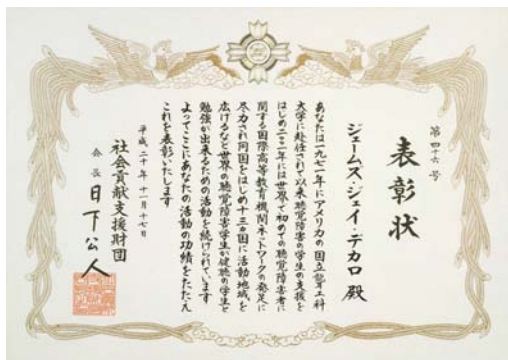 第四十六号
表彰状
ジェームス・ジェイ・デカロ 殿
あなたは一九七一年にアメリカの国立聾工科
大学に赴任されて以来聴覚障害の学生の支援を
はじめ二〇〇一年には世界で初めての聴覚障害者に
関する国際高等教育機関ネットワークの発足に
尽力され同国をはじめ十三ヵ国に活動地域を
広げるなど世界の聴覚障害学生が健聴の学生と
勉強が出来るための活動を続けられています
よってここにあなたの活動の功績をたたえ
これを表彰いたします
平成二十年十一月十七日
社会貢献支援財団
会長 日下公人